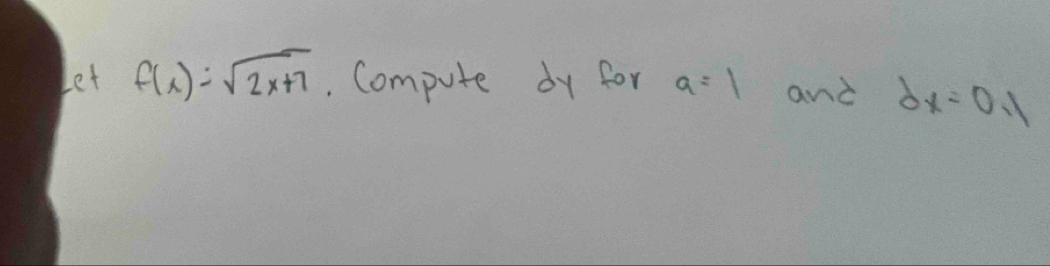 Let f(x)=√2x+7. Compute dy for a=1 and dx=0.1